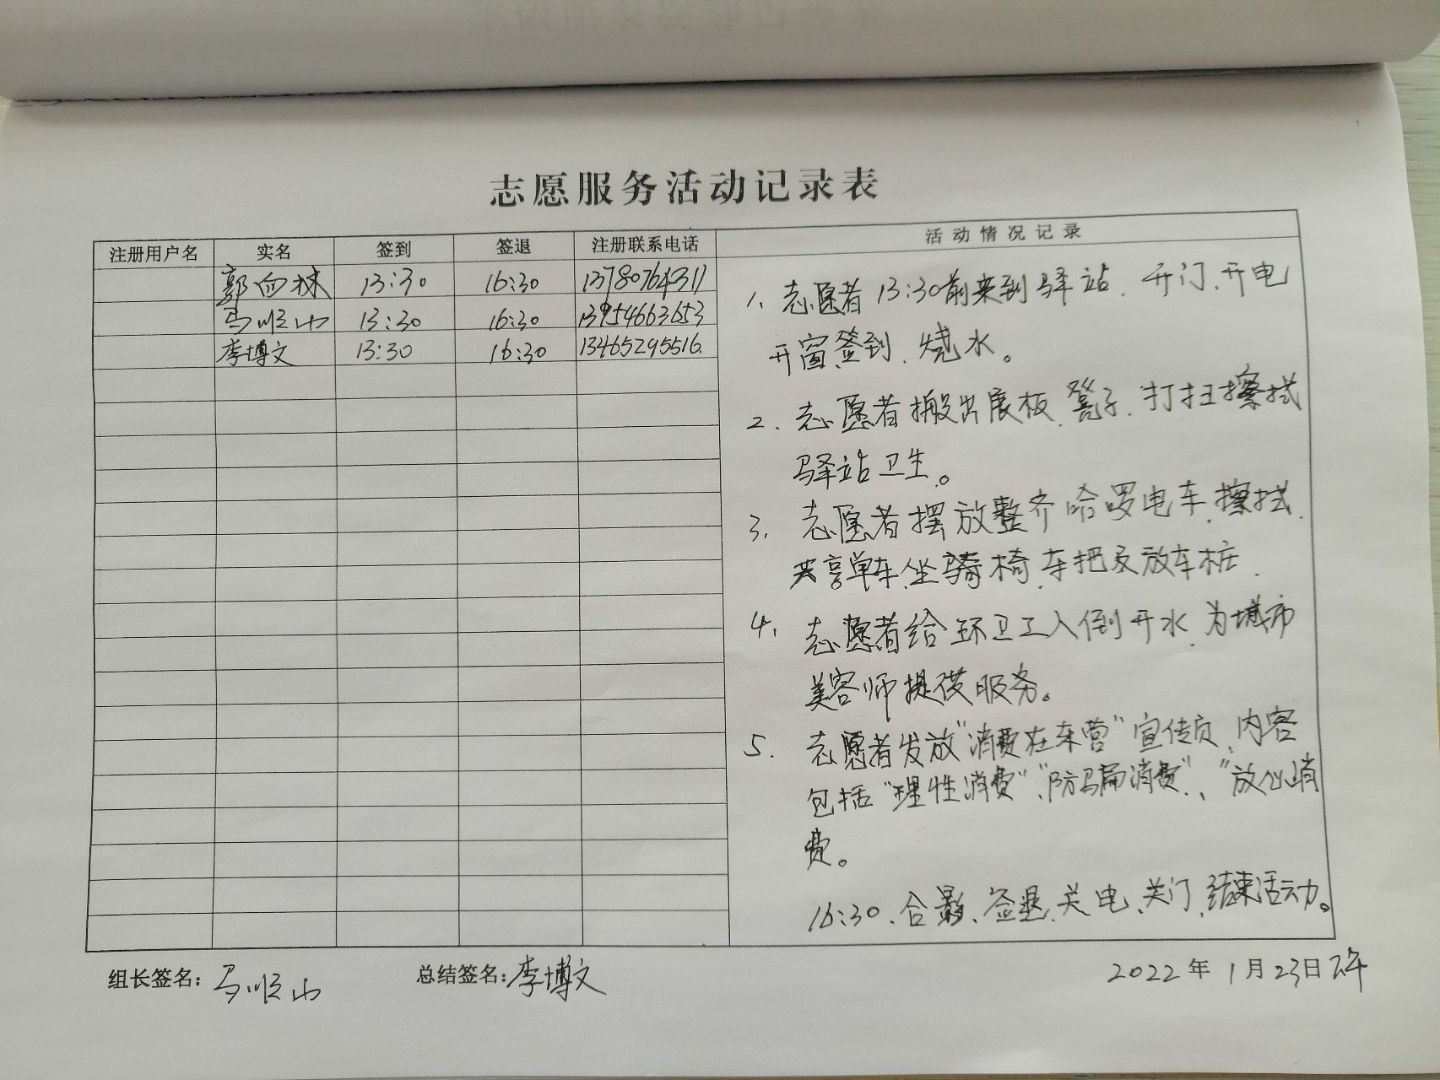 志愿服务活动记录表
注册用户名 实名 签到 签退 注册联系电话 活动情况记录
郭向林 13:30 16:30 13780764311
马顺山 13:30 16:30 13954663653
李博文 13:30 16:30 13465295516
1、志愿者13:30前来到驿站、开门、开电
开窗、签到、烧水。
2、志愿者搬出展板、凳子、打扫擦拭
驿站卫生。
3、志愿者摆放整齐哈啰电车、擦拭
共享单车坐骑椅、车把及放车桩
4、志愿者给环卫工人倒开水、为城市
美容师提供服务。
5、志愿者发放“消费在东营”宣传页、内容
包括“理性消费”、“防骗消费”、“放心消
费。
16:30、合影、签退、关电、关门、结束活动。
组长签名：马顺山 总结签名：李博文 2022年1月23日下午